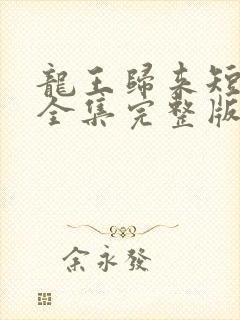 龍王歸來短
全集完整版
余永發